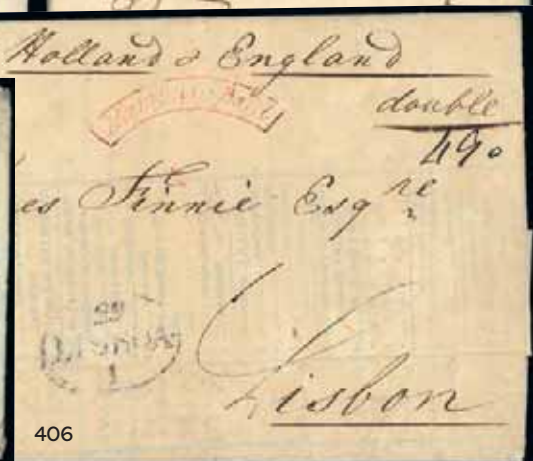 Holland & England
double
490
es Finnie Esqre
Lisbon
1
406